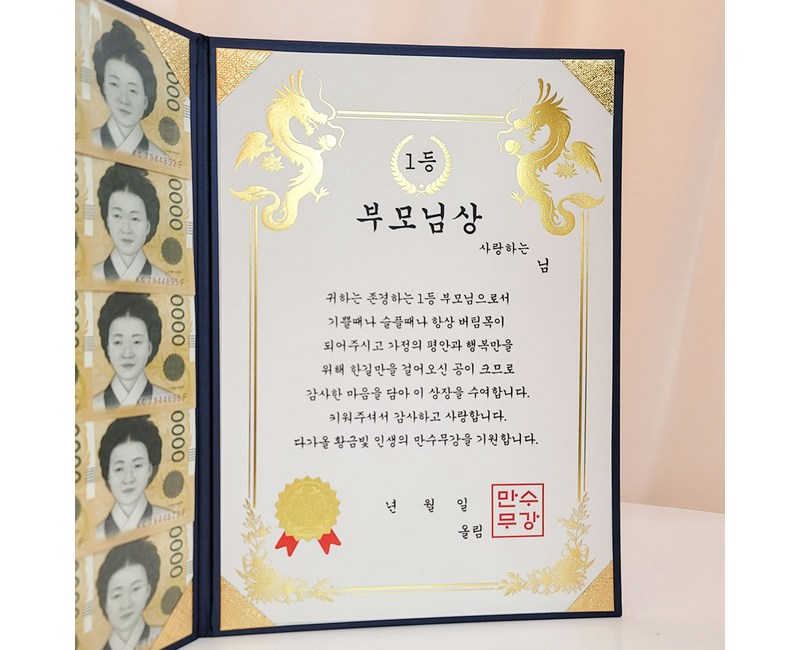 1등
부모님상
사랑하는
님
귀하는 존경하는 1등 부모님으로서
기쁠때나 슬플때나 항상 버팀목이
되어주시고 가정의 평안과 행복만을
위해 한길만을 걸어오신 공이 크므로
감사한 마음을 담아 이 상장을 수여합니다.
키워주셔서 감사하고 사랑합니다.
다가올 황금빛 인생의 만수무강을 기원합니다.
년 월 일
올림
만수
무강
0000
0000
0000
0000
0000